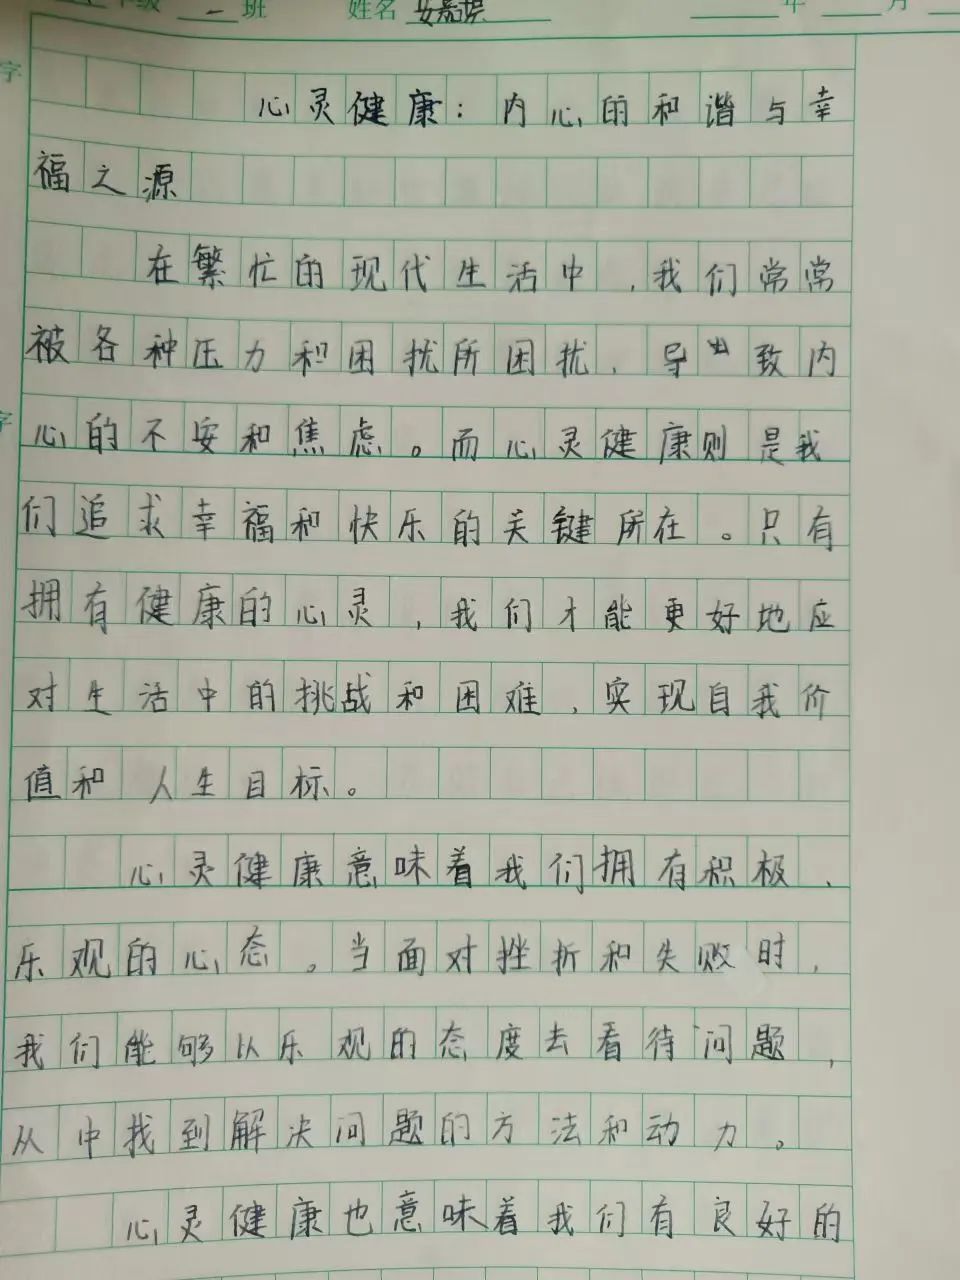 年级 二 班 姓名 年 月
字
心灵健康：内心的和谐与幸
福之源
在繁忙的现代生活中，我们常常
被各种压力和困扰所困扰，导出致内
字
心的不安和焦虑。而心灵健康则是我
们追求幸福和快乐的关键所在。只有
拥有健康的心灵，我们才能更好地应
对生活中的挑战和困难，实现自我价
值和人生目标。
心灵健康意味着我们拥有积极、
乐观的心态。当面对挫折和失败时，
我们能够从乐观的态度去看待问题，
从中找到解决问题的方法和动力。
心灵健康也意味着我们有良好的